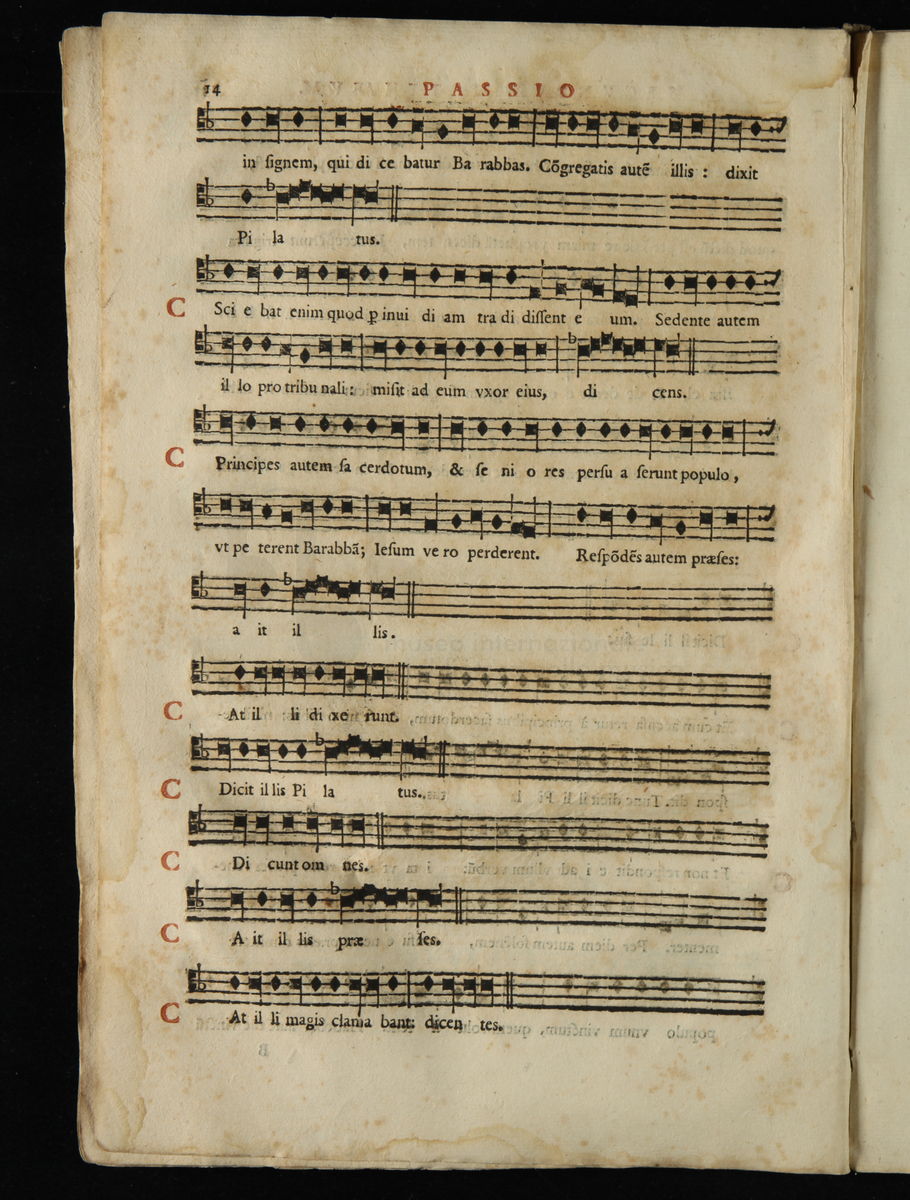 14 PASSIO
in signem, qui di ce batur Ba rabbas. Cōgregatis autē illis : dixit
Pi la tus.
C Sci e bat enim quod ꝑ inui di am tra di dissent e um. Sedente autem
il lo pro tribu nali : misit ad eum vxor eius, di cens.
C Principes autem sa cerdotum, & se ni o res persu a serunt populo ,
vt pe terent Barabbā; Iesum ve ro perderent. Respōdēs autem præses:
a it il lis.
C At il li di xe runt.
C Dicit il lis Pi la tus.
C Di cunt om nes.
C A it il lis præ ses.
C At il li magis clama bant: dicen tes.